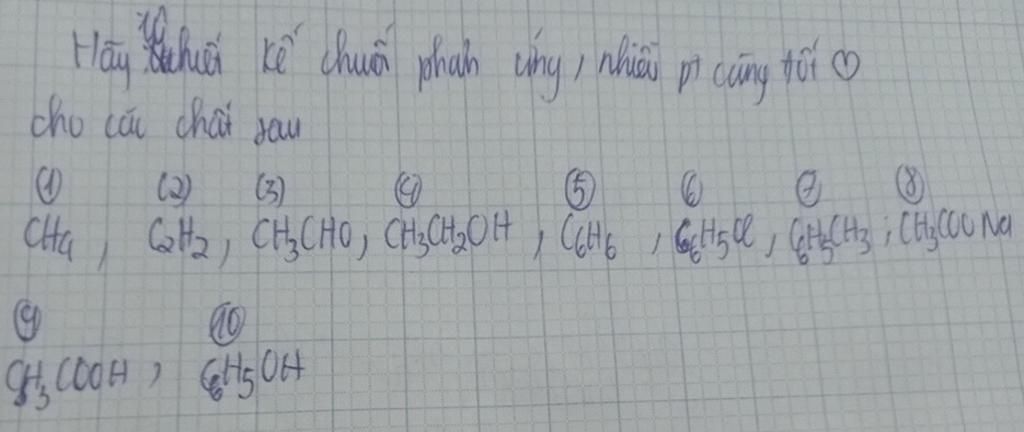 Hãy kế chuỗi phản ứng, nhiều pt càng tốt ♡
cho các chất sau
① (2) (3) ④ ⑤ ⑥ ⑦ ⑧
CH4, C2H2, CH3CHO, CH3CH2OH, C6H6, C6H5Cl, C6H5CH3, CH3COONa
⑨ ⑩
CH3COOH, C6H5OH